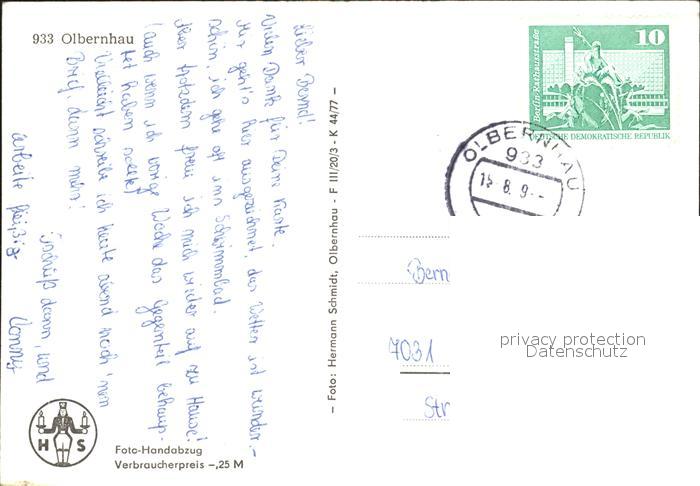 933 Olbernhau
Lieber Bernd!
Vielen Dank für Deine Karte.
Mir geht's hier ausgezeichnet, das Wetter ist wunder-
schön, ich gehe oft ins Schwimmbad.
Aber trotzdem freu ich mich wieder auf zu Hause!
(auch wenn ich vorige Woche das Gegenteil behaup-
tet haben sollte)
Vielleicht schreibe ich heute abend noch 'nen
Brief, dann mehr!
Tschüß dann, und
arbeite fleißig
Conny
– Foto: Hermann Schmidt, Olbernhau - F III/20/3 - K 44/77 –
Berlin-Rathausstraße
10
DEUTSCHE DEMOKRATISCHE REPUBLIK
OLBERNHAU
933
15.8.
Bern
7031
Str
privacy protection
Datenschutz
H S
Foto-Handabzug
Verbraucherpreis –,25 M